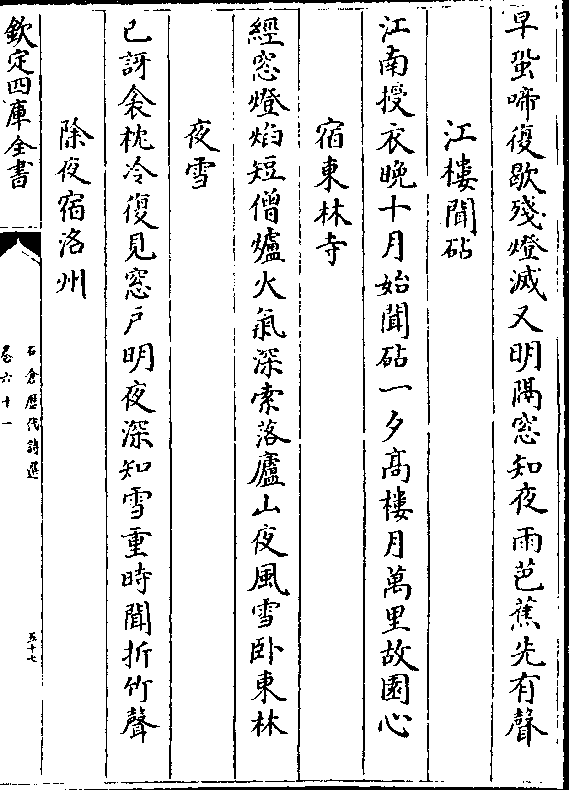 早蛩啼復歇殘燈滅又明隔窓知夜雨芭蕉先有聲
江樓聞砧
江南授衣晚十月始聞砧一夕髙樓月萬里故園心
宿東林寺
經窓燈焰短僧爐火氣深索落廬山夜風雪卧東林
夜雪
已訝衾枕冷復見窓戶明夜深知雪重時聞折竹聲
除夜宿洺州
欽定四庫全書
石倉歷代詩選
卷六十一
五十七